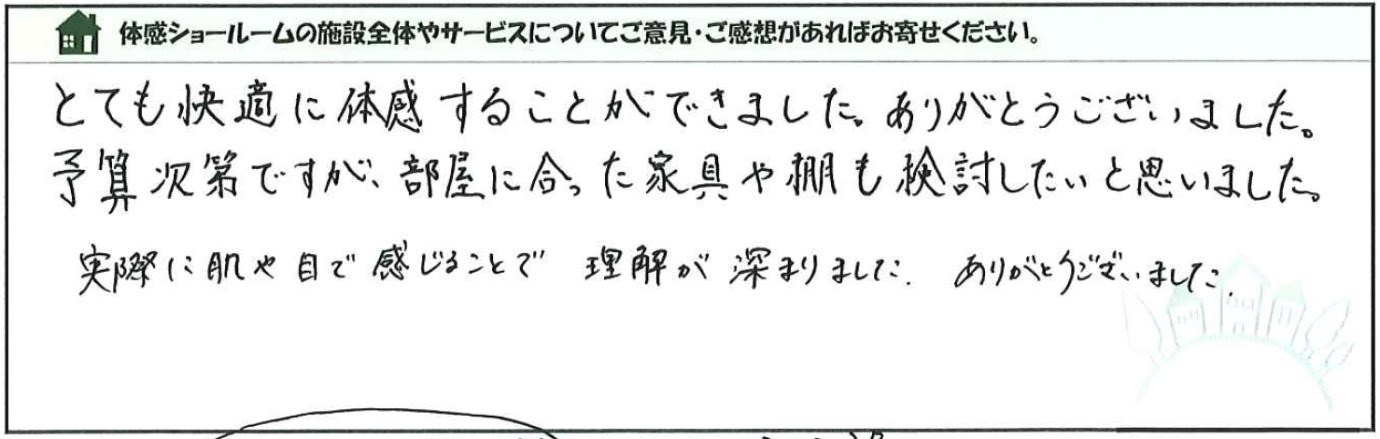 体感ショールームの施設全体やサービスについてご意見・ご感想があればお寄せください。
とても快適に体感することができました。ありがとうございました。
予算次第ですが、部屋に合った家具や棚も検討したいと思いました。
実際に肌や目で感じることで 理解が深まりました. ありがとうございました.